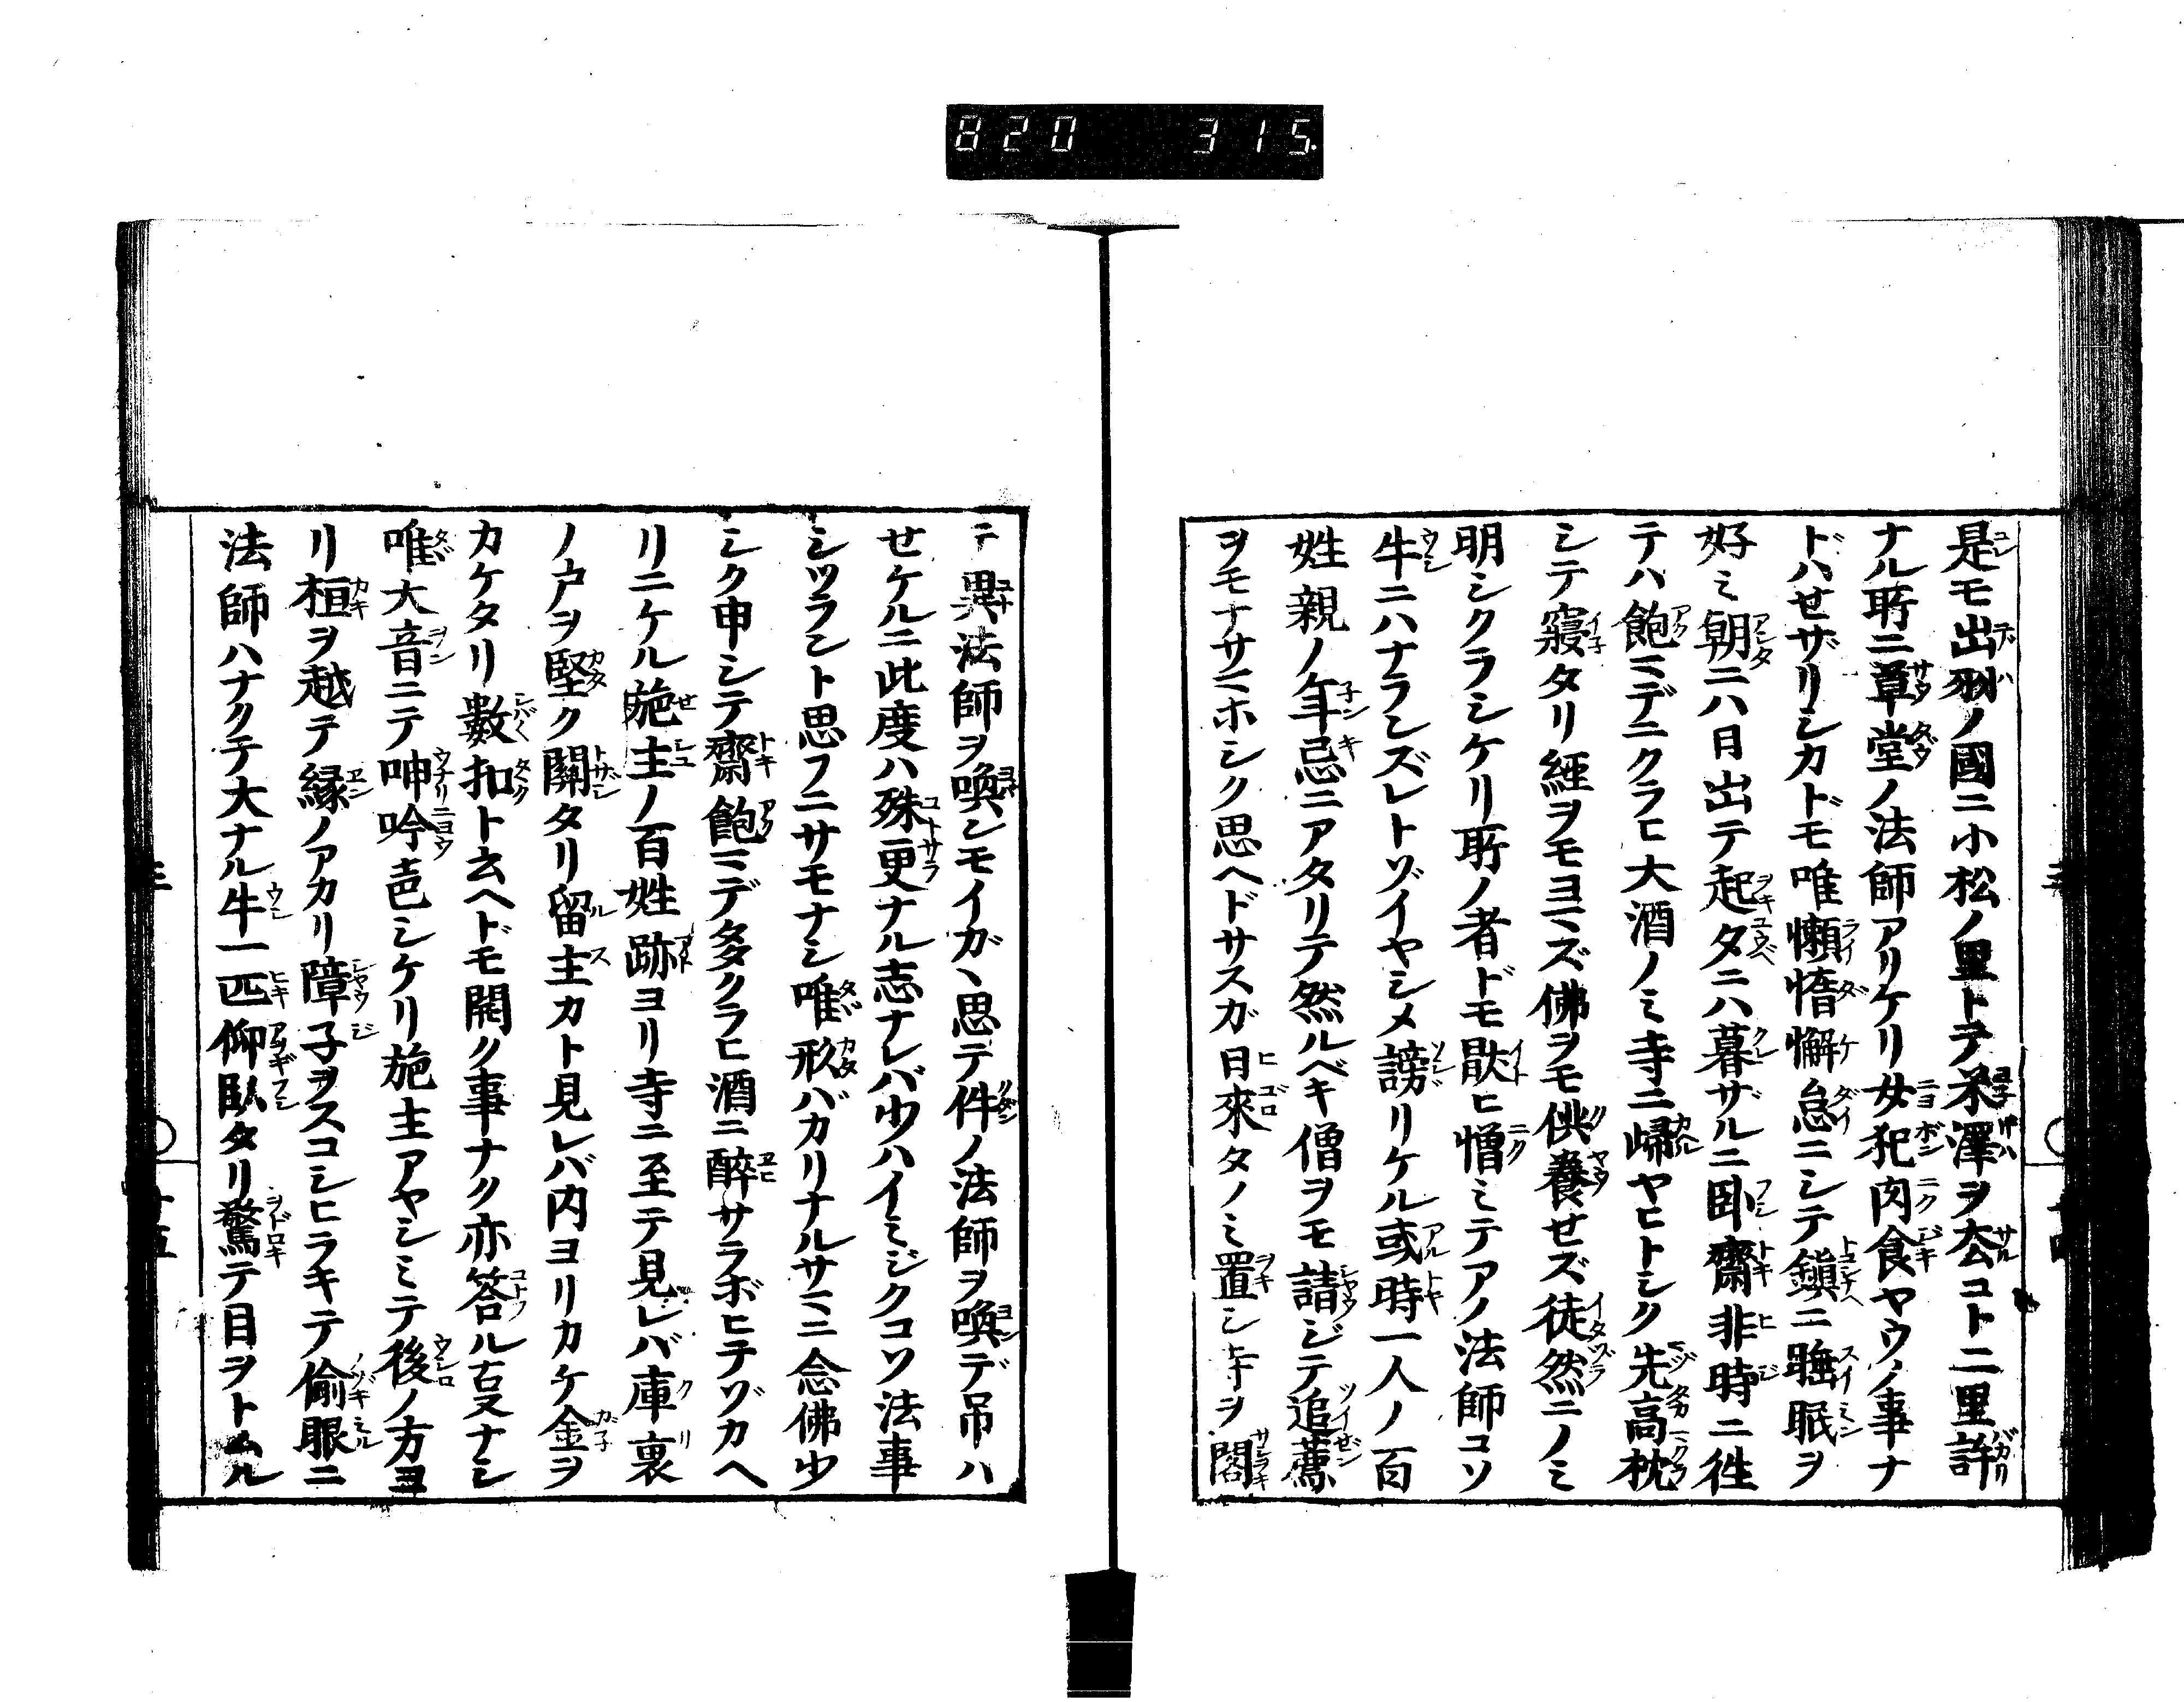 820 315.
是モ出羽ノ國ニ小松ノ里トテ米澤ヲ厺コト二里許
ナル所ニ草堂ノ法師アリケリ女犯肉食ヤウノ事ナ
ドハせザリシカドモ唯懶惰懈怠ニシテ鎮ニ睡眠ヲ
好ミ朝ニハ日出テ起夕ニハ暮ザルニ卧齋非時ニ徃
テハ飽ミデニクラヒ大酒ノミ寺ニ歸ヤヒトシク先高枕
シテ寢タリ經ヲモヨミズ佛ヲモ供養せズ徒然ニノミ
明シクラシケリ所ノ者ドモ猒ヒ憎ミテアノ法師コソ
牛ニハナランズレトゾイヤシメ謗リケル或時一人ノ百
姓親ノ年忌ニアタリテ然ルベキ僧ヲモ請ジテ追薦
ヲモナサミホシク思ヘドサスガ日來タノミ置シ寺ヲ閣
テ異法師ヲ喚ンモイガヽ思テ件ノ法師ヲ喚デ吊ハ
せケルニ此度ハ殊更ナル志ナレバ少ハイミジクコソ法事
シツラント思フニサモナシ唯形バカリナルサミニ念佛少
シク申シテ齋飽ミデ多クラヒ酒ニ醉サラボヒテゾカヘ
リニケル施主ノ百姓跡ヨリ寺ニ至テ見レバ庫裏
ノ戸ヲ堅ク關タリ留主カト見レバ内ヨリカケ金ヲ
カケタリ數扣ト云ヘドモ開ク事ナク亦答ル㐂ナシ
唯大音ニテ呻吟壱シケリ施主アヤシミテ後ノ方ヨ
リ桓ヲ越テ縁ノアカリ障子ヲスコシヒラキテ偷眼ニ
法師ハナクテ大ナル牛一匹仰臥タリ驚テ目ヲトムル